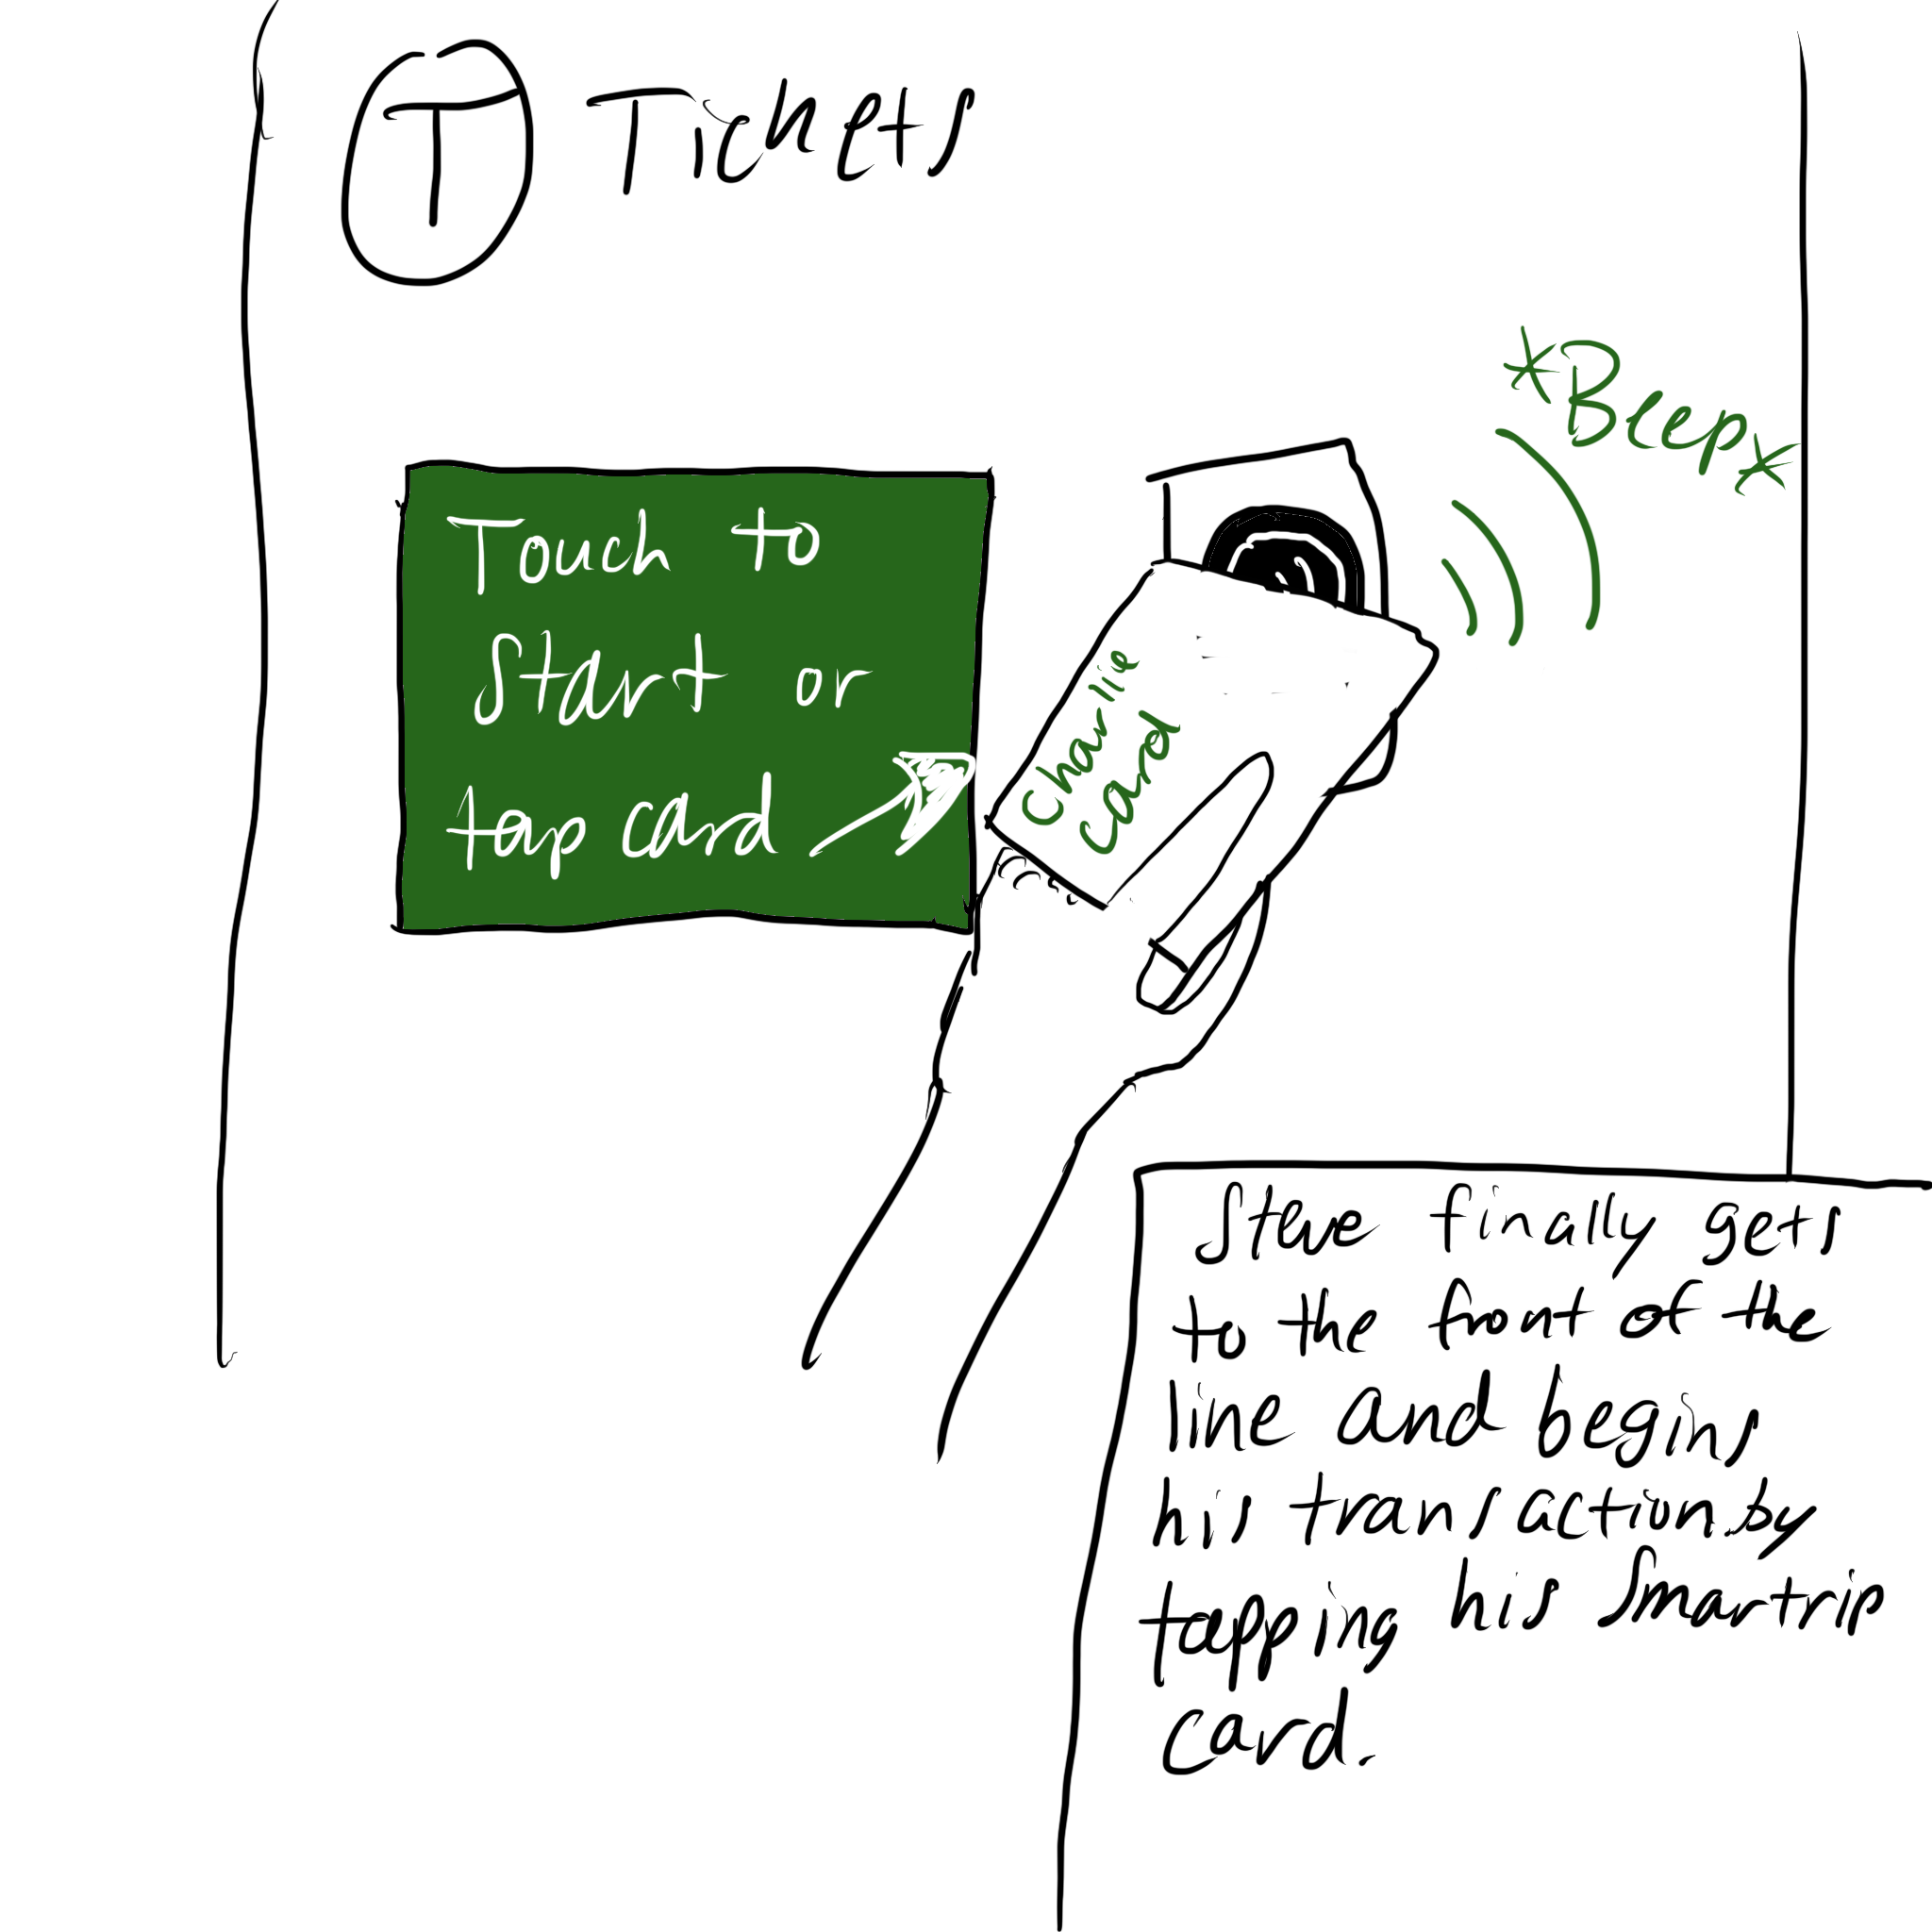 T Tickets
*Beep*
Touch to
Start or
tap card
Charlie
Card
Steve finally gets
to the front of the
line and begins
his transaction by
tapping his Smartrip
card.